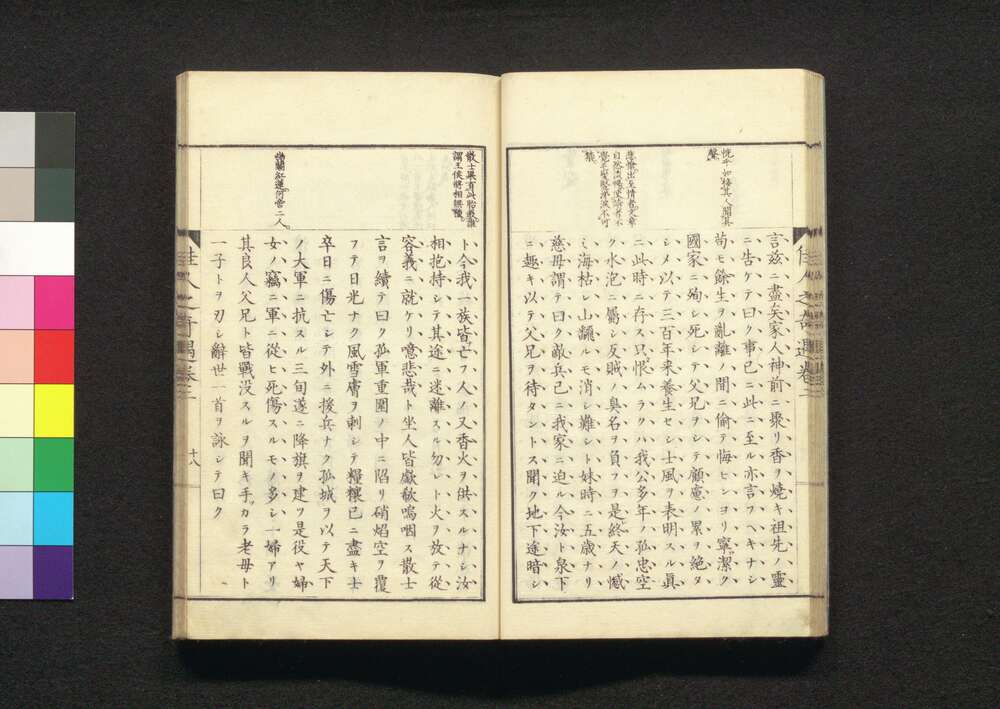 恍乎如接其人聞其
聲
悲慘出至情者文章
自然
猿
言茲ニ盡矣家人神前ニ聚リ香ヲ燒キ祖先ノ靈
ニ告ケテ曰ク事已ニ此ニ至ル亦言フヘキナシ
苟モ餘生ヲ亂離ノ間ニ偷テ悔ヒンヨリ寧潔ク
國家ニ殉シ死シテ父兄ヲシテ顧慮ノ累ヲ絶タ
シメ以テ三百年來養生セシ士風ヲ表明スル眞
ニ此時ニ存ス只恨ムラクハ我公多年ノ孤忠空
ク水泡ニ屬シ反賊ノ臭名ヲ負フヲ是終天ノ憾
ミ海枯レ山飜ルモ消シ難シト妹時ニ五歳ナリ
慈母謂テ曰ク敵兵已ニ我家ニ迫ル今汝ト泉下
ニ趣キ以テ父兄ヲ待タントス聞ク地下途暗シ
佳人之奇遇卷二
散士果有此胎教誰
謂王侯將相無種
幽蘭紅蓮何啻二人
ト今我一族皆亡フ人ノ又香火ヲ供スルナシ汝
相抱持シテ其途ニ迷離スル勿レト火ヲ放テ從
容義ニ就ケリ噫悲哉ト坐人皆歔欷嗚咽ス散士
言ヲ續テ曰ク孤軍重圍ノ中ニ陷リ硝焰空ヲ覆
フテ日光ナク風雪膚ヲ刺シテ糧穰已ニ盡キ士
卒日ニ傷亡シテ外ニ援兵ナク孤城ヲ以テ天下
ノ大軍ニ抗スル三旬遂ニ降旗ヲ建ツ是役ヤ婦
女ノ竊ニ軍ニ從ヒ死傷スルモノ多シ一婦アリ
其良人父兄ト皆戰没スルヲ聞キ手カラ老母ト
一子トヲ刃シ辭世一首ヲ詠シテ曰ク
佳人之奇遇卷二
十八